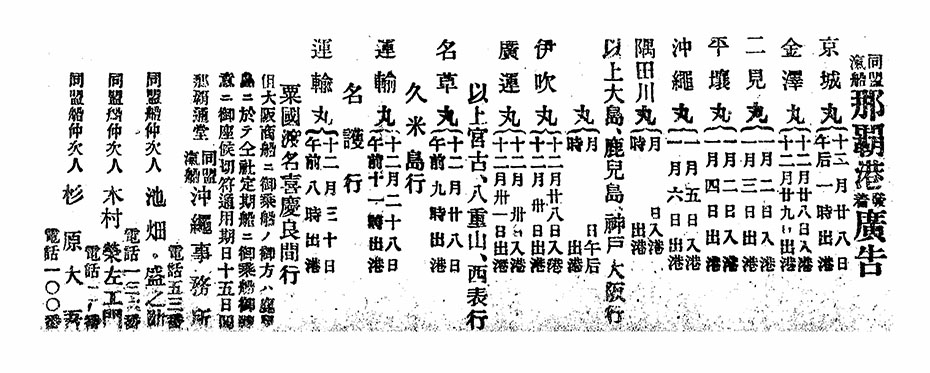 同盟滊船那覇港發着廣告
京城丸 十二月廿八日 午后一時出港
金澤丸 十二月廿八日入港 十二月廿九日出港
二見丸 一月二日入港 一月三日出港
平壤丸 一月二日入港 一月四日出港
沖繩丸 一月五日入港 一月六日出港
隅田川丸 月 日入港 時 出港
以上大島、鹿兒島、神戸大阪行
丸 月 日午后 時 出港
伊吹丸 十二月廿八日入港 十二月卅日出港
廣運丸 十二月卅日入港 十二月卅一日出港
以上宮古、八重山、西表行
名草丸 十二月廿八日 午前九時出港
久米島行
運輸丸 十二月二十八日 午前十一時出港
名護行
運輸丸 十二月三十日 午前八時出港
粟國渡名喜慶良間行
但大阪商船ニ御乘船ノ御方ハ
ニ於テ仝社定期船ニ御乘船御
意ニ御座候切符通用期日十五日間
那覇通堂 同盟滊船 沖繩事務所 電話五三番
同盟船仲次人 池畑盛之助 電話一三番
同盟船仲次人 木村榮左工門 電話一 番
同盟船仲次人 杉原大吾 電話一〇〇番